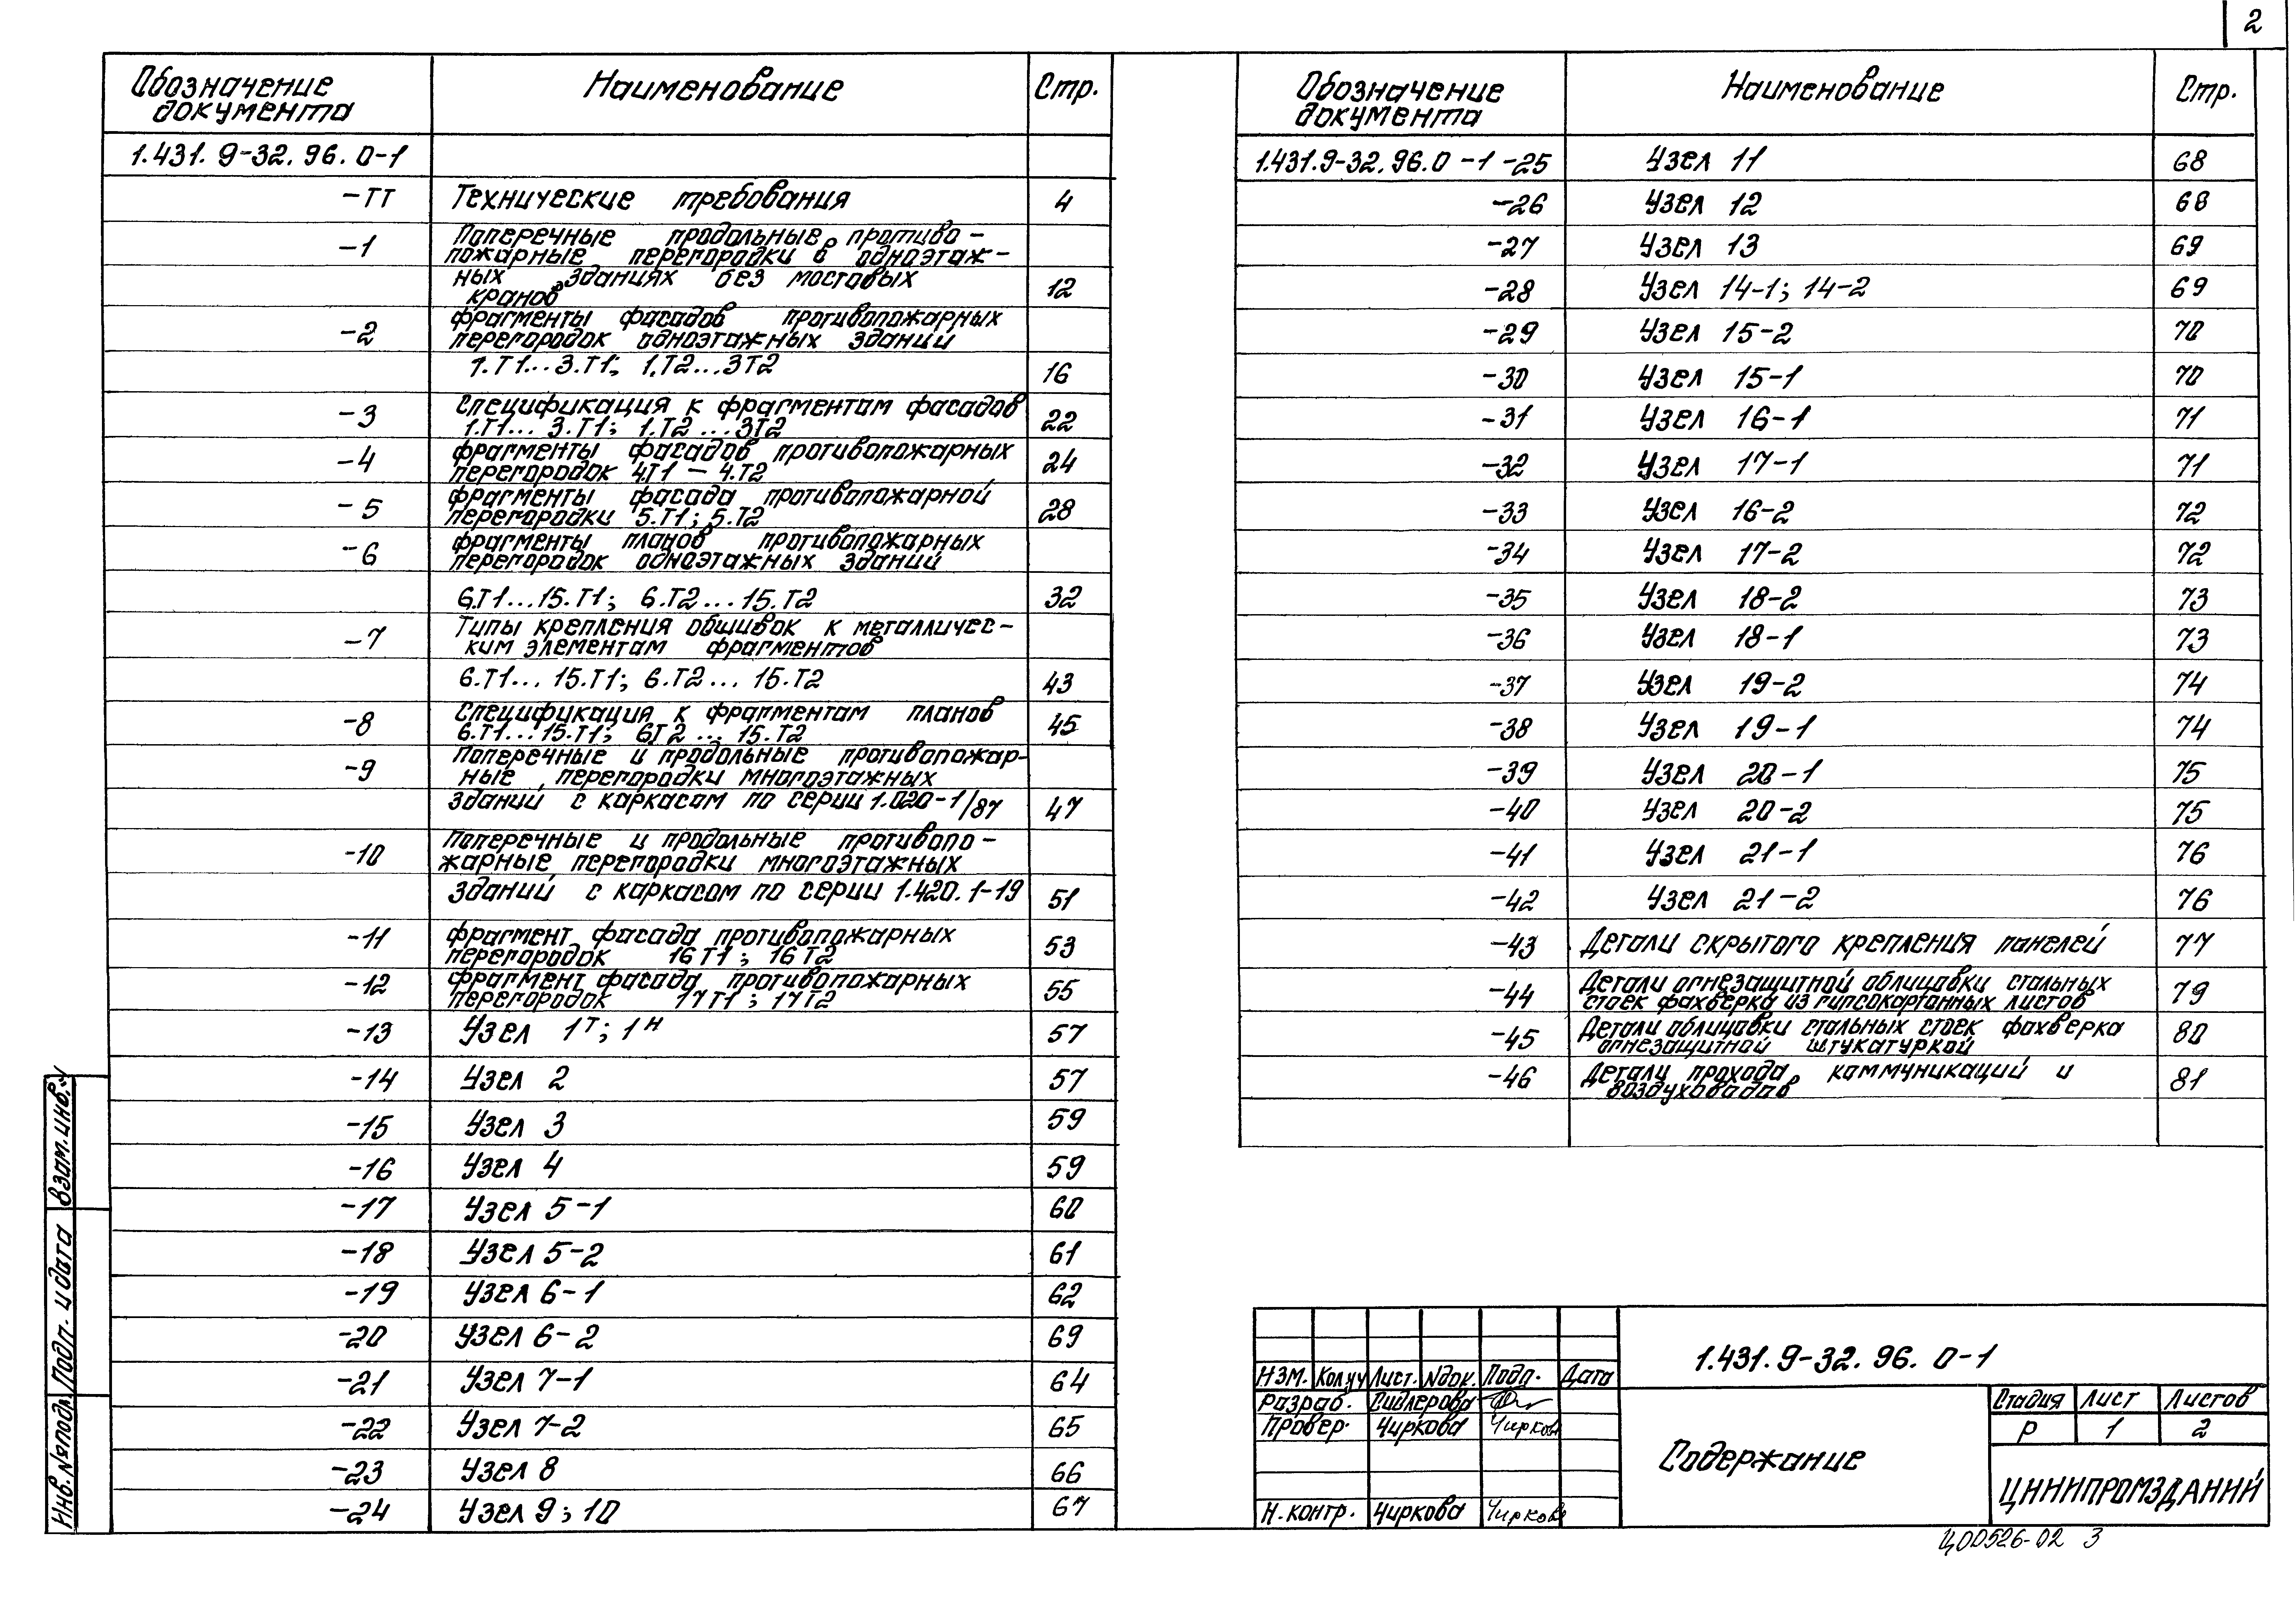 2
Обозначение документа Наименование Стр.
1.431.9-32.96.0-1
-ТТ Технические требования 4
-1 Поперечные продольные противо-
пожарные перегородки в одноэтаж-
ных зданиях без мостовых
кранов 12
-2 фрагменты фасадов противопожарных
перегородок одноэтажных зданий
1.Т1...3.Т1; 1.Т2...3Т2 16
-3 Спецификация к фрагментам фасадов
1.Т1...3.Т1; 1.Т2...3Т2 22
-4 фрагменты фасадов противопожарных
перегородок 4.Т1 – 4.Т2 24
-5 фрагменты фасада противопожарной
перегородки 5.Т1; 5.Т2 28
-6 фрагменты планов противопожарных
перегородок одноэтажных зданий
6.Т1...15.Т1; 6.Т2...15.Т2 32
-7 Типы крепления обшивок к металличес-
ким элементам фрагментов
6.Т1...15.Т1; 6.Т2...15.Т2 43
-8 Спецификация к фрагментам планов
6.Т1...15.Т1; 6Т2...15.Т2 45
-9 Поперечные и продольные противопожар-
ные перегородки многоэтажных
зданий с каркасом по серии 1.020-1/87 47
-10 Поперечные и продольные противопо-
жарные перегородки многоэтажных
зданий с каркасом по серии 1.420.1-19 51
-11 фрагмент фасада противопожарных
перегородок 16Т1; 16Т2 53
-12 фрагмент фасада противопожарных
перегородок 17Т1; 17Т2 55
-13 Узел 1т; 1н 57
-14 Узел 2 57
-15 Узел 3 59
-16 Узел 4 59
-17 Узел 5-1 60
-18 Узел 5-2 61
-19 Узел 6-1 62
-20 Узел 6-2 69
-21 Узел 7-1 64
-22 Узел 7-2 65
-23 Узел 8 66
-24 Узел 9; 10 67
Обозначение документа Наименование Стр.
1.431.9-32.96.0-1-25 Узел 11 68
-26 Узел 12 68
-27 Узел 13 69
-28 Узел 14-1; 14-2 69
-29 Узел 15-2 70
-30 Узел 15-1 70
-31 Узел 16-1 71
-32 Узел 17-1 71
-33 Узел 16-2 72
-34 Узел 17-2 72
-35 Узел 18-2 73
-36 Узел 18-1 73
-37 Узел 19-2 74
-38 Узел 19-1 74
-39 Узел 20-1 75
-40 Узел 20-2 75
-41 Узел 21-1 76
-42 Узел 21-2 76
-43 Детали скрытого крепления панелей 77
-44 Детали огнезащитной облицовки стальных
стоек фахверка из гипсокартонных листов 79
-45 Детали облицовки стальных стоек фахверка
огнезащитной штукатуркой 80
-46 Детали прохода коммуникаций и
воздуховодов 81
Взам.инв.№
Подп. и дата
Инв.№подл.
Изм. Кол.уч Лист. №док. Подп. Дата
Разраб. Сидлерова
Провер. Чиркова Чиркова
Н.контр. Чиркова Чиркова
1.431.9-32.96.0-1
Содержание
Стадия Лист Листов
Р 1 2
ЦНИИПРОМЗДАНИЙ
Ц00526-02 3